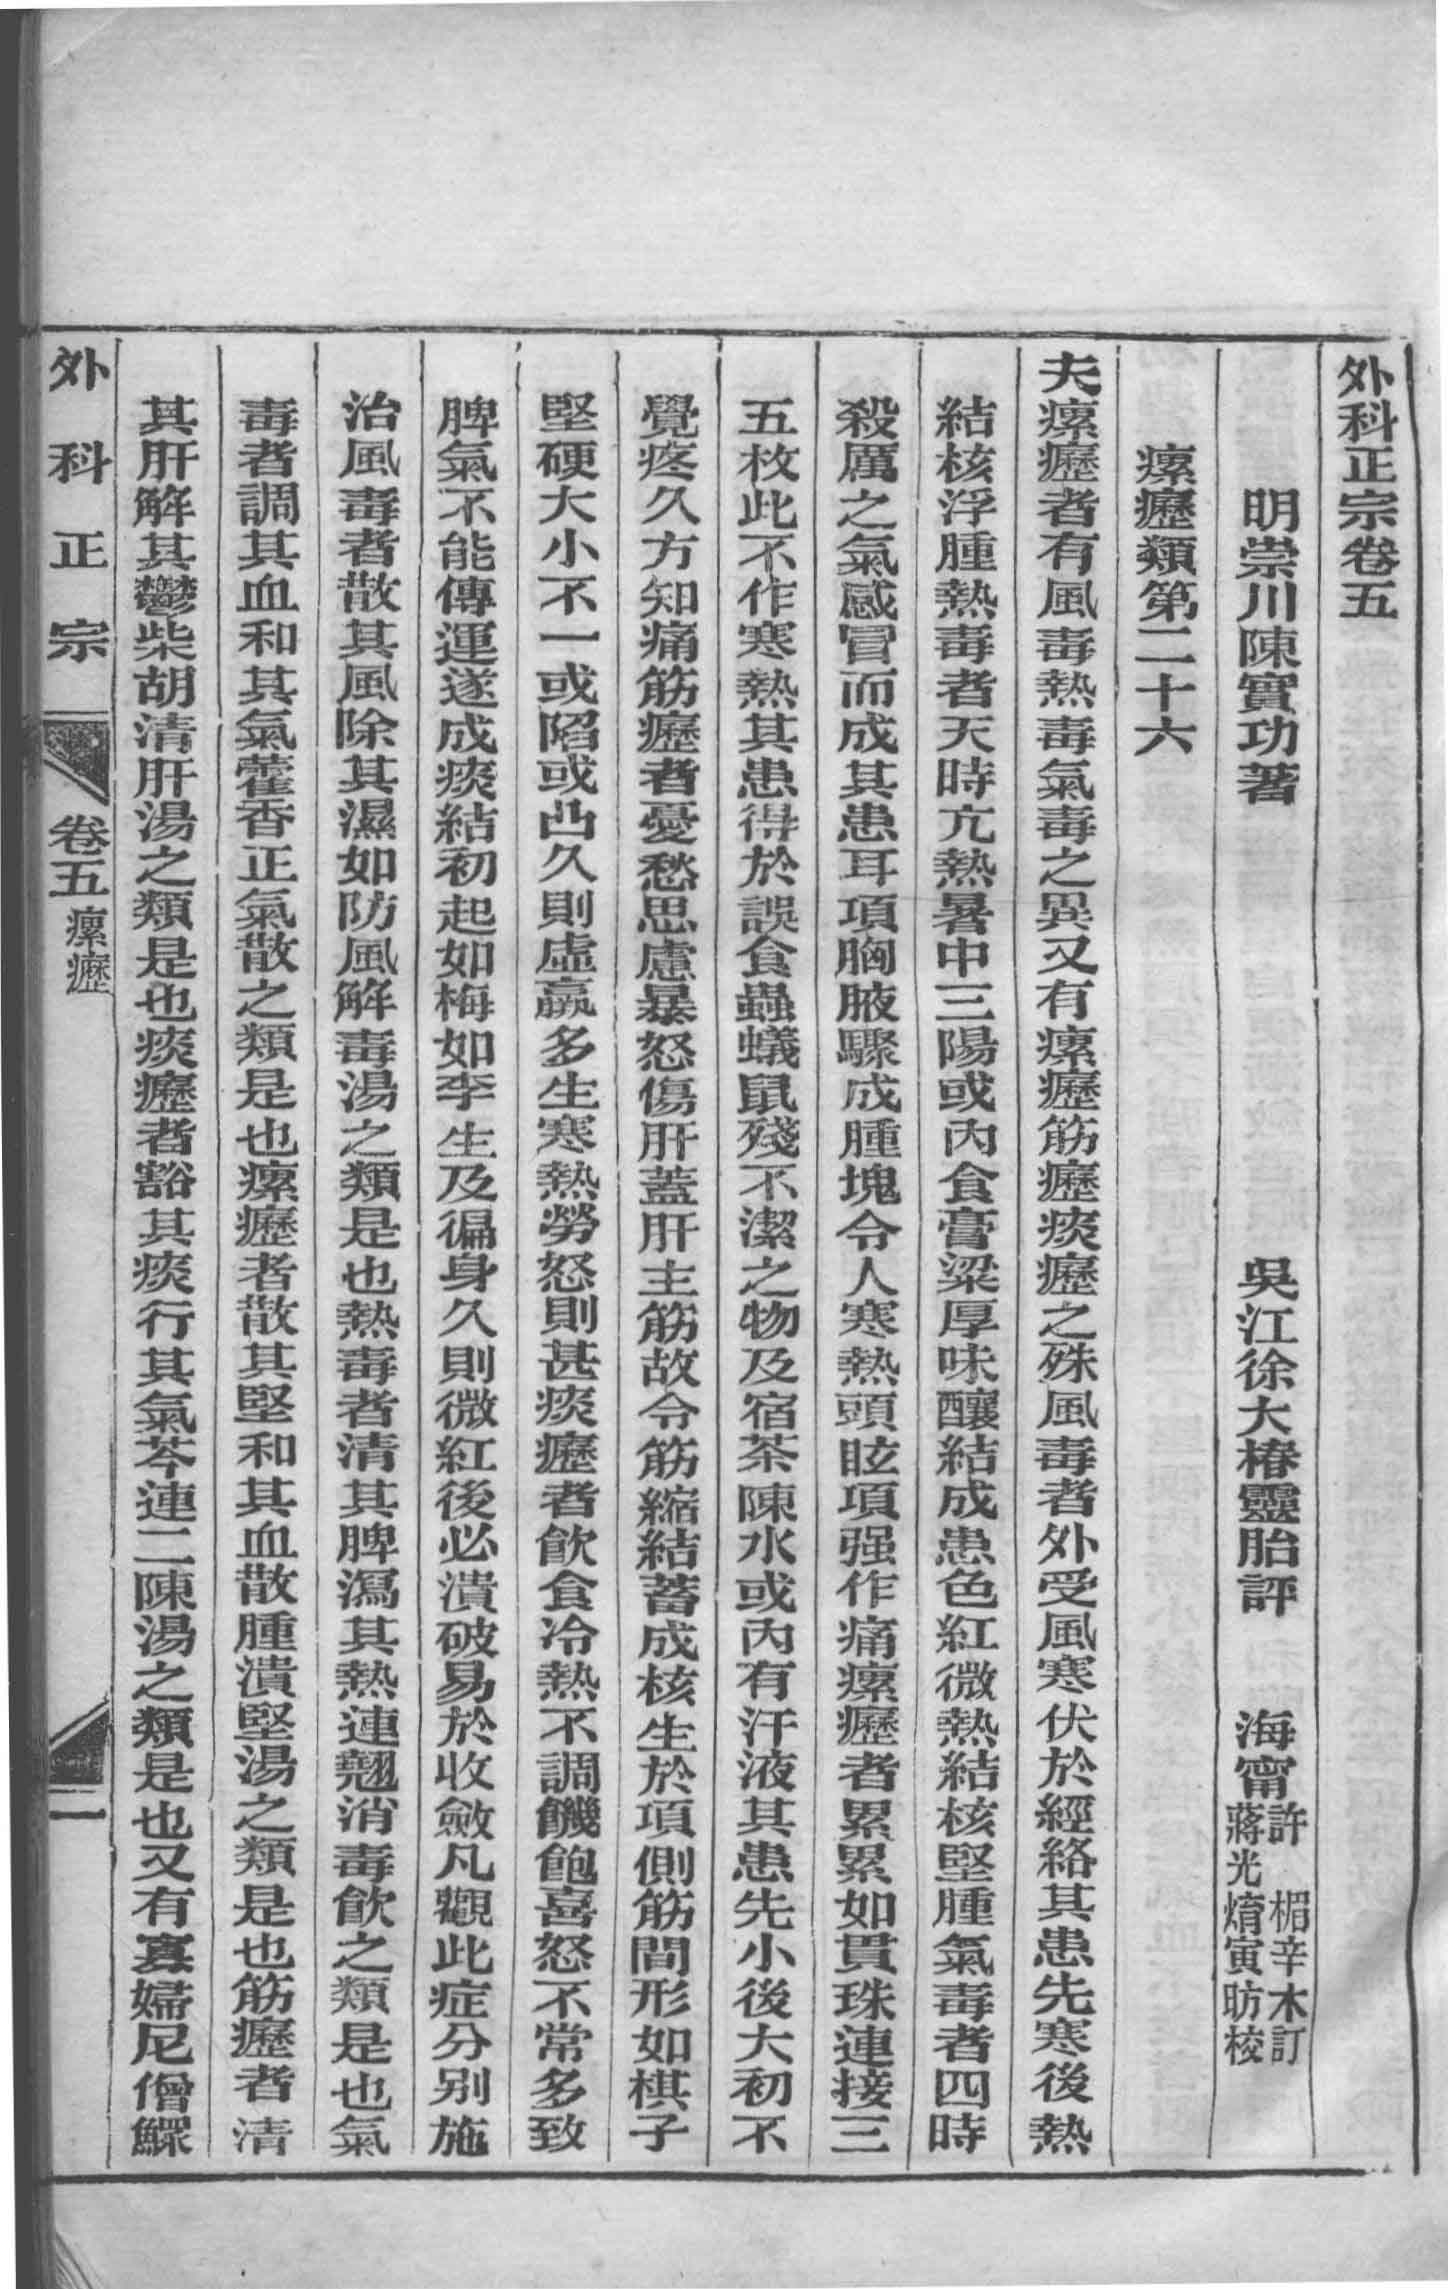 外科正宗卷五
明崇川陳實功著　吳江徐大椿靈胎評　海甯許　楣辛木訂
蔣光焴寅昉校
瘰癧類第二十六
夫瘰癧者有風毒熱毒氣毒之異又有瘰癧筋癧痰癧之殊風毒者外受風寒伏於經絡其患先寒後熱
結核浮腫熱毒者天時亢熱暑中三陽或內食膏粱厚味釀結成患色紅微熱結核堅腫氣毒者四時
殺厲之氣感冒而成其患耳項胸腋驟成腫塊令人寒熱頭眩項强作痛瘰癧者累累如貫珠連接三
五枚此不作寒熱其患得於誤食蟲蟻鼠殘不潔之物及宿茶陳水或內有汗液其患先小後大初不
覺疼久方知痛筋癧者憂愁思慮暴怒傷肝蓋肝主筋故令筋縮結蓄成核生於項側筋間形如棋子
堅硬大小不一或陷或凸久則虛羸多生寒熱勞怒則甚痰癧者飲食冷熱不調饑飽喜怒不常多致
脾氣不能傳運遂成痰結初起如梅如李生及徧身久則微紅後必潰破易於收斂凡觀此症分别施
治風毒者散其風除其濕如防風解毒湯之類是也熱毒者清其脾瀉其熱連翹消毒飲之類是也氣
毒者調其血和其氣藿香正氣散之類是也瘰癧者散其堅和其血散腫潰堅湯之類是也筋癧者清
其肝解其鬱柴胡清肝湯之類是也痰癧者豁其痰行其氣芩連二陳湯之類是也又有寡婦尼僧鰥
外科正宗　卷五　瘰癧　一